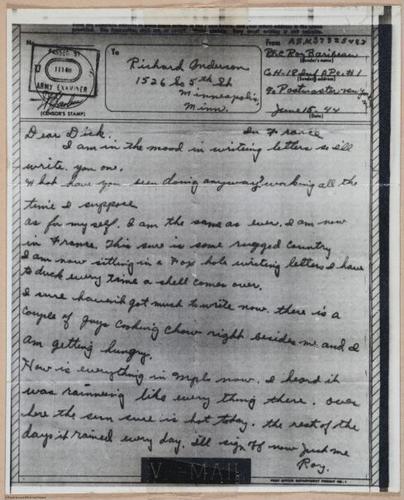 To
Richard Anderson
1526 So 5th St
Minneapolis,
Minn.
From
Pfc Roy Baribeau
(Sender's name)
(Sender's address)
June 15 - 44
(Date)
ARMY EXAMINER
(CENSOR'S STAMP)
Dear Dick. In France
I am in the mood in writing letters so ill
write you one.
What have you been doing anyway? working all the
time I suppose
as for my self. I am the same as ever. I am now
in France. This sure is some rugged country
I am now sitting in a Fox hole writing letters I have
to duck every time a shell comes over.
I sure haven't got much to write now. there is a
couple of guys Cooking Chow right besides me and I
am getting hungry.
How is everything in Mpls now. I heard it
was rainning like every thing there. over
here the sun sure is hot today. the rest of the
days it rained every day. ill sign off now Just me
Roy.
V - MAIL